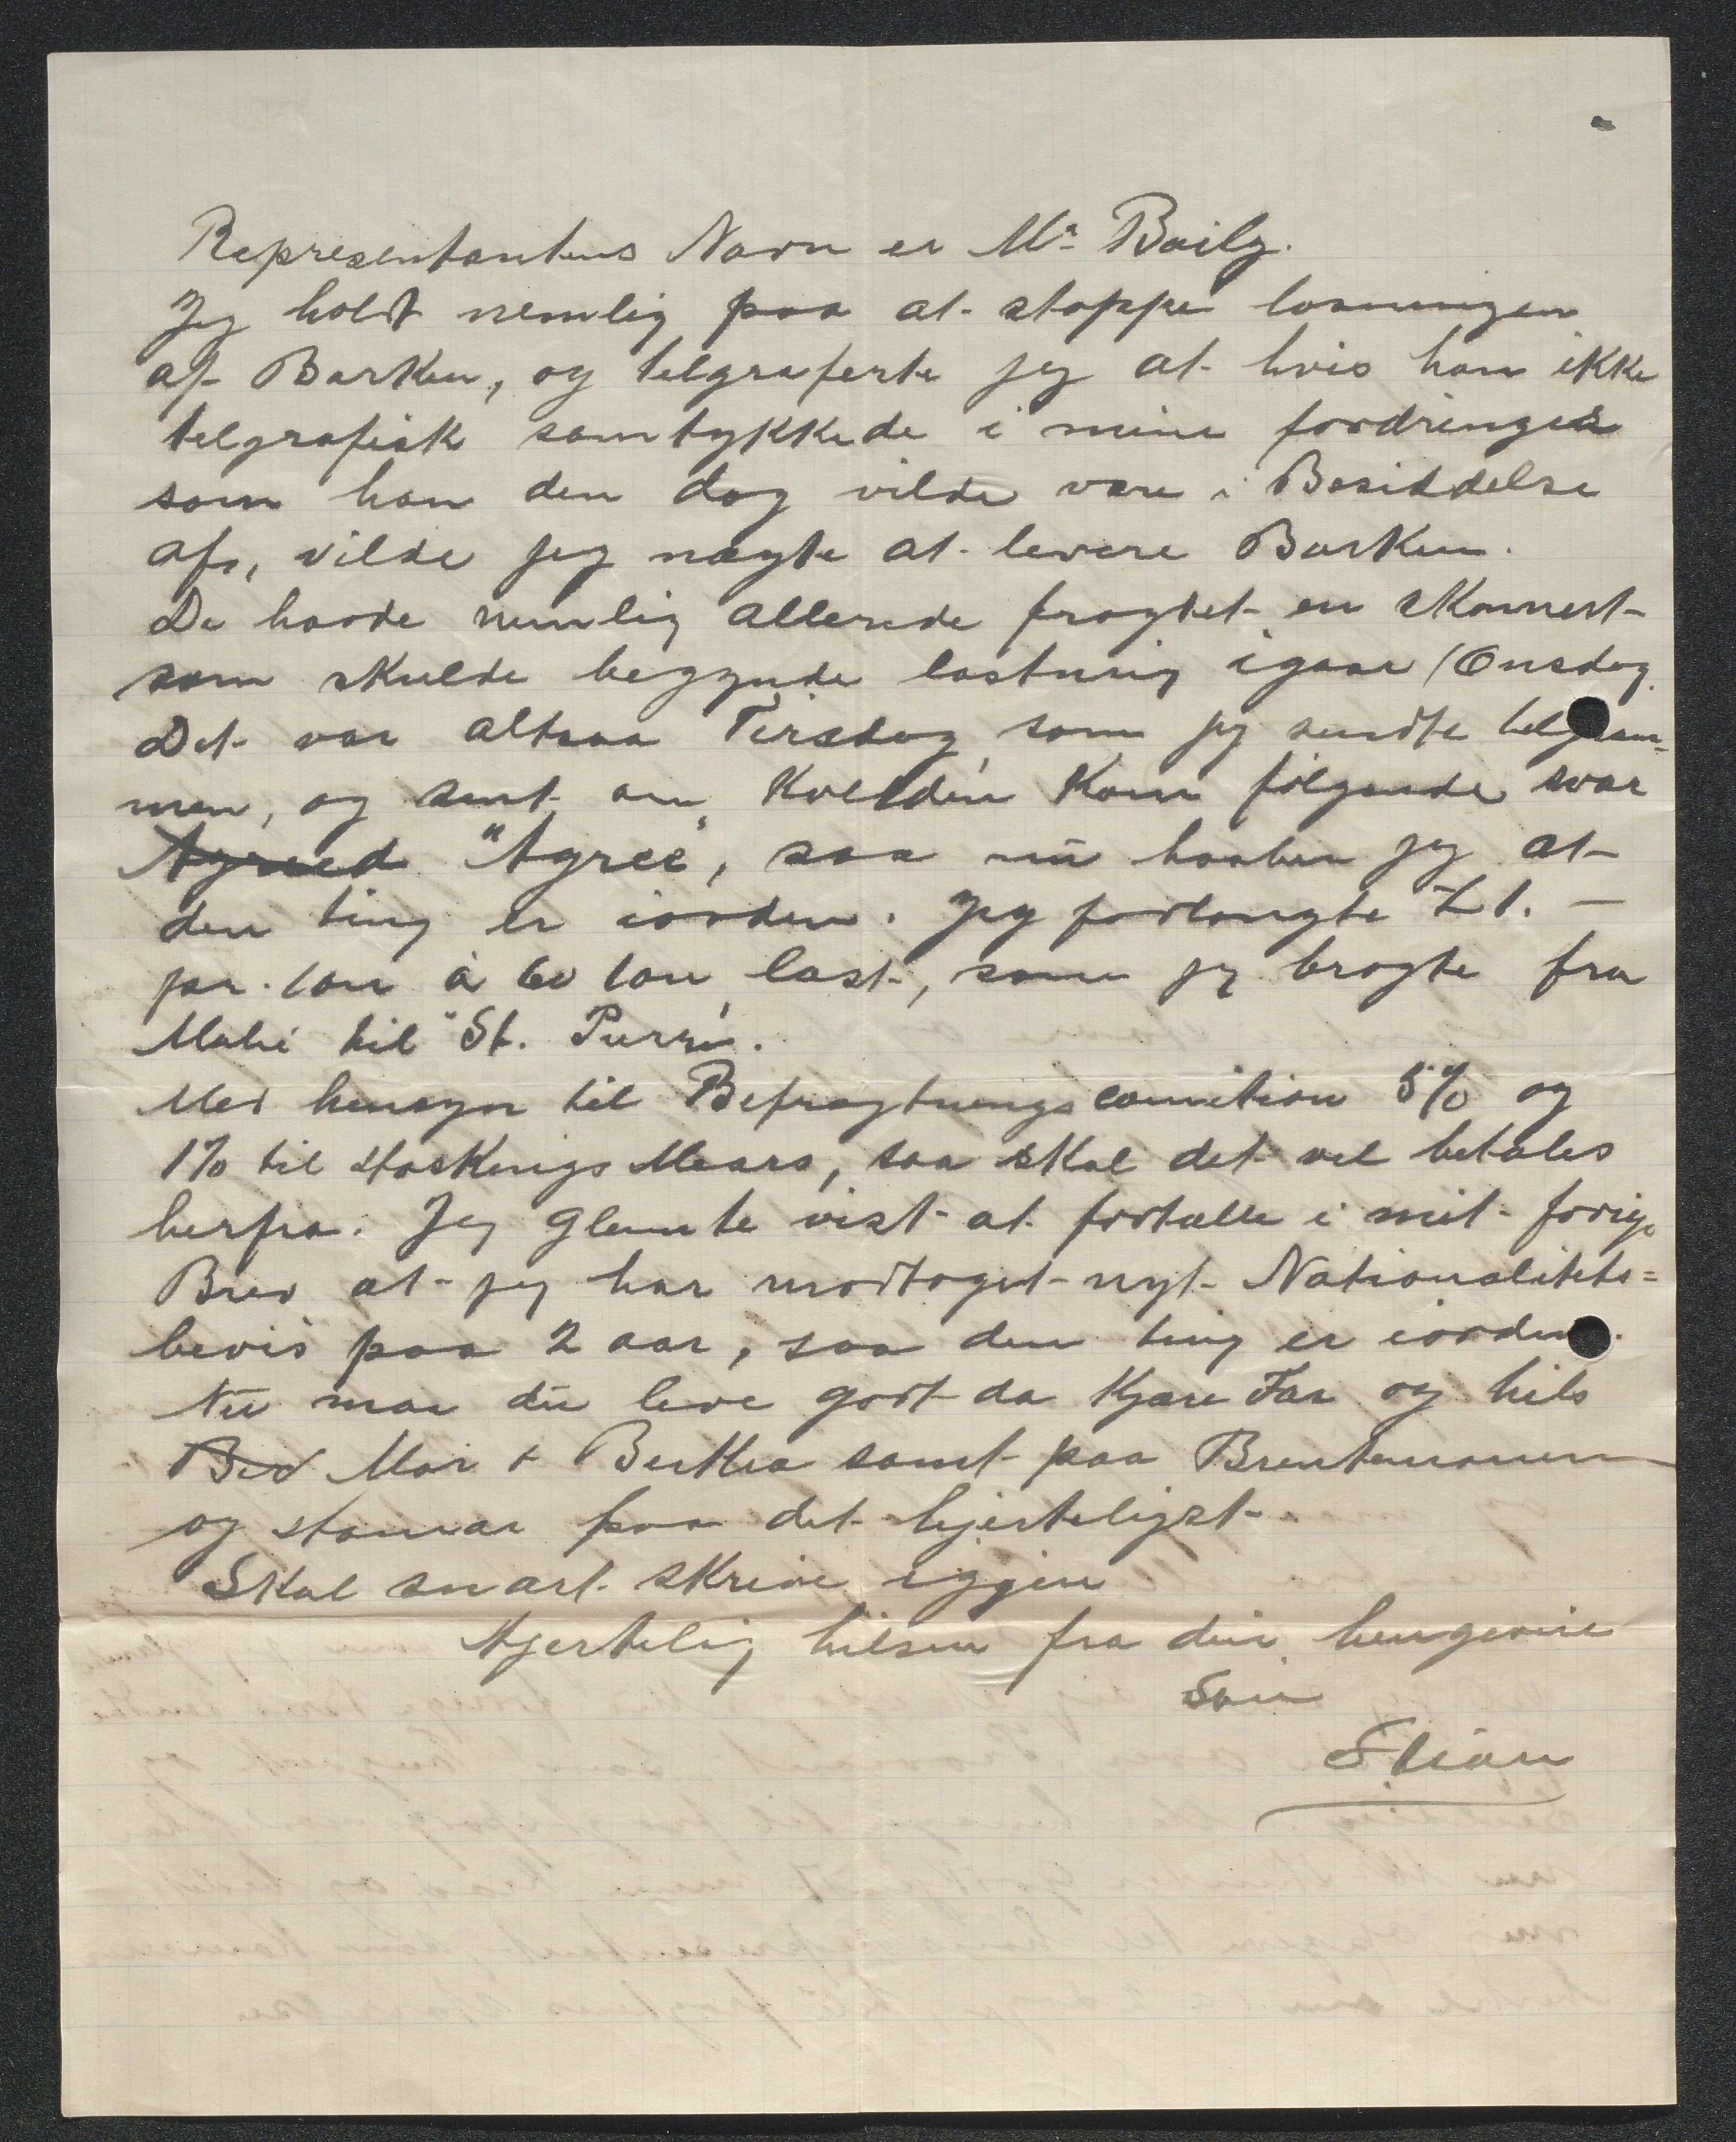 Representantens Navn er Mr Baily.
Jeg holdt nemlig paa at stoppe losningen
af Barken, og telgraferte jeg at hvis han ikke
telgrafisk samtykkede i mine fordringer
som han den dag vilde være i Besiddelse
af, vilde jeg nægte at levere Barken.
De havde nemlig allerede fragtet en skonnert
som skulde begynde lastning igaar (Onsdag.
Det var altsaa Tirsdag som jeg sendte telgram-
men, og sent om Kvelden kom følgende svar
Agreed "Agree", saa nu haaber jeg at
den ting er iorden. Jeg forlangte £ 1. —
per. ton á 60 ton last, som jeg bragte fra
Mahé til St. Pierre.
Med hensyn til Befragtningscomition 5% og
1% til Hoskings Mears, saa skal det vel betales
herfra. Jeg glemte vist at fortælle i mit forige
Brev at jeg har modtaget nyt Nationalitets=
bevis paa 2 aar, saa den ting er iorden.
Nu maa du leve godt da Kjære Far og hils
Bed Mor + Bertha samt paa
og paa det hjerteligst.
Skal snart skrive iggjen
Hjertelig hilsen fra din hengivne
Søn
Stian